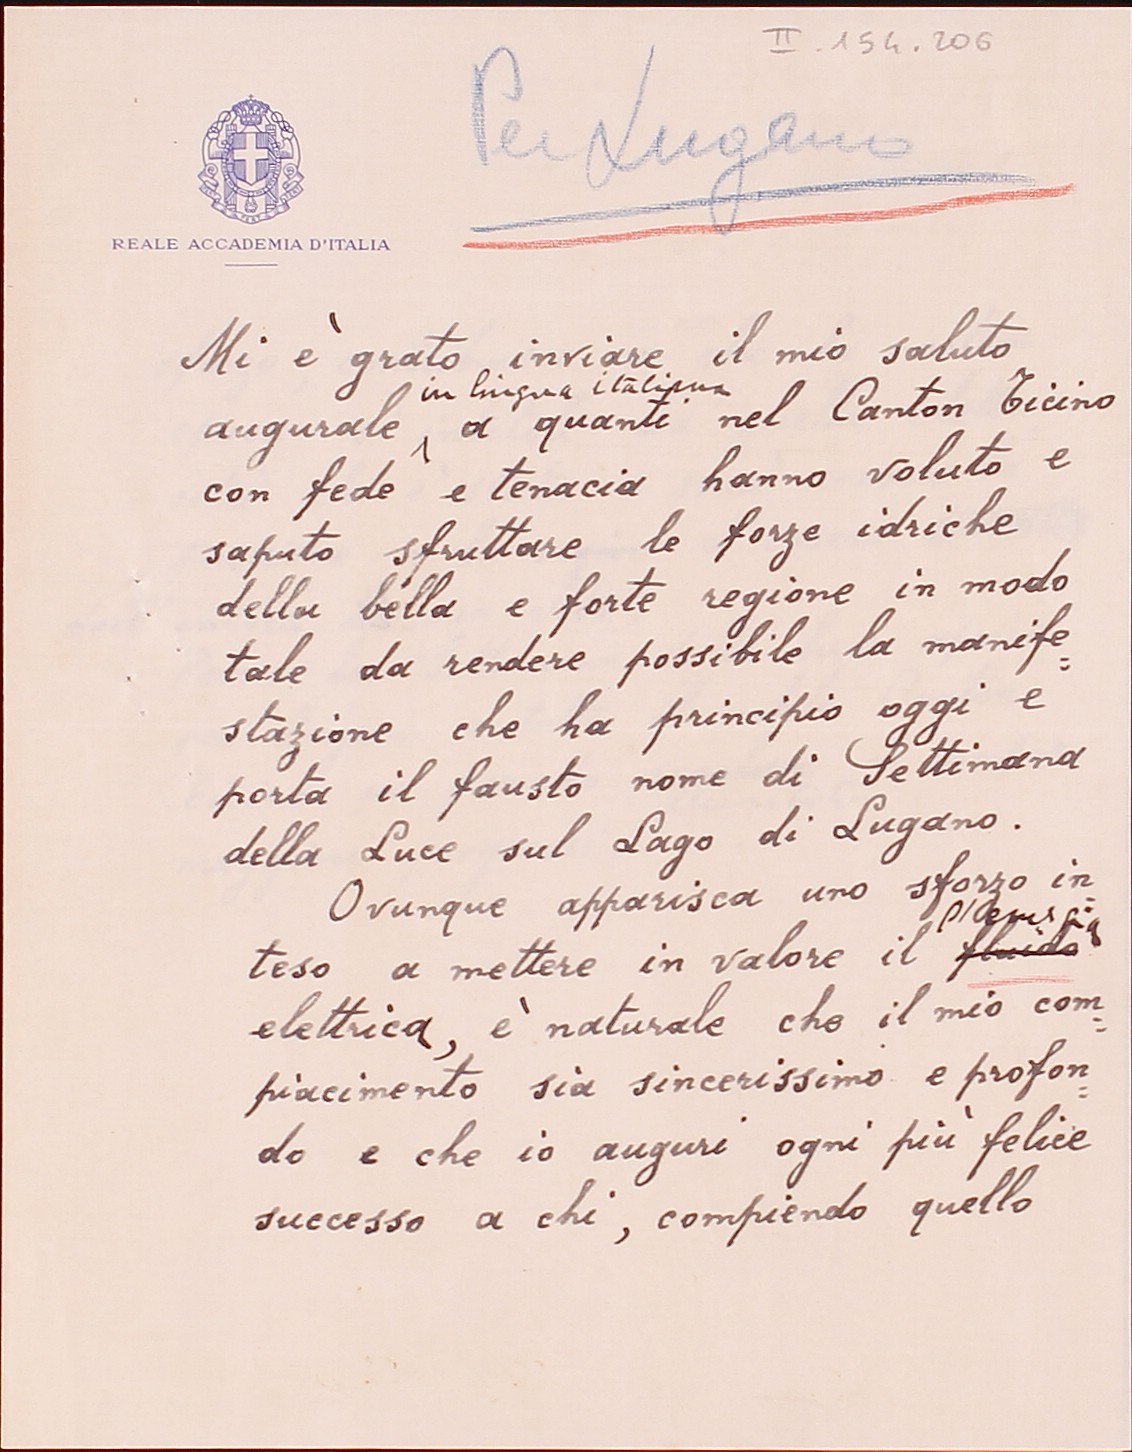 II. 154. 206
Per Lugano
REALE ACCADEMIA D'ITALIA
Mi è grato inviare il mio saluto
in lingua italiana
augurale, a quanti nel Canton Ticino
con fede e tenacia hanno voluto e
saputo sfruttare le forze idriche
della bella e forte regione in modo
tale da rendere possibile la manife=
stazione che ha principio oggi e
porta il fausto nome di Settimana
della Luce sul Lago di Lugano.
Ovunque apparisca uno sforzo in=
l'energia
teso a mettere in valore il fluido
elettrica, è naturale che il mio com=
piacimento sia sincerissimo e profon=
do e che io auguri ogni più felice
successo a chi, compiendo quello